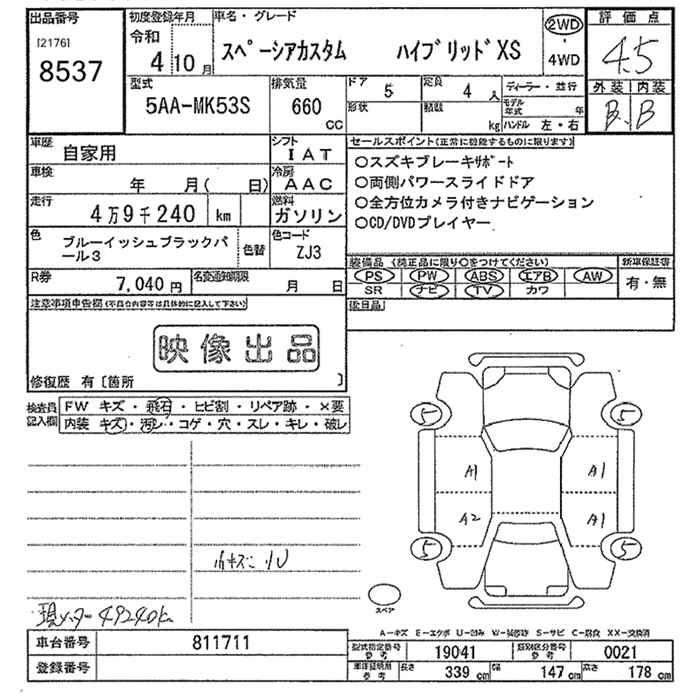 出品番号 初度登録年月 車名・グレード 2WD 評価点
[2176] 令和 スペーシアカスタム ハイブリッドXS ・ 4.5
8537 4年 10月 4WD 外装 内装
型式 排気量 ドア 5 定員 4人 ディーラー・並行 B B
5AA-MK53S 660 CC 形状 積載 kg モデル年式 年
ハンドル 左・右
車歴 自家用 シフト IAT セールスポイント(正常に機能するものに限ります)
車検 年 月( 日) 冷房 AAC ○スズキブレーキサポート
走行 4万9千240 km 燃料 ガソリン ○両側パワースライドドア
○全方位カメラ付きナビゲーション
○CD/DVDプレイヤー
色 ブルーイッシュブラックパール3 色替 色コード ZJ3
装備品 (純正品に限り○をつけてください) 新車保証書
R券 7,040円 名変通知期限 月 日 PS PW ABS エアB AW 有・無
SR ナビ TV カワ
注意事項申告欄(不具合内容等は具体的に記入して下さい) 後日品
映像出品
修復歴 有〔箇所 〕
検査員記入欄 FW キズ・飛石・ヒビ割・リペア跡・×要
内装 キズ・汚レ・コゲ・穴・スレ・キレ・破レ
5 5
A1 A1
A2 A1
5 5
小キズ 凹
スペア
現メーター 49240k
A-キズ E-エクボ U-凹み W-補修跡 S-サビ C-腐食 XX-交換済
車台番号 811711 型式指定番号 参考 19041 類別区分番号 参考 0021
登録番号 車庫証明用 参考 長さ 339 cm 幅 147 cm 高さ 178 cm